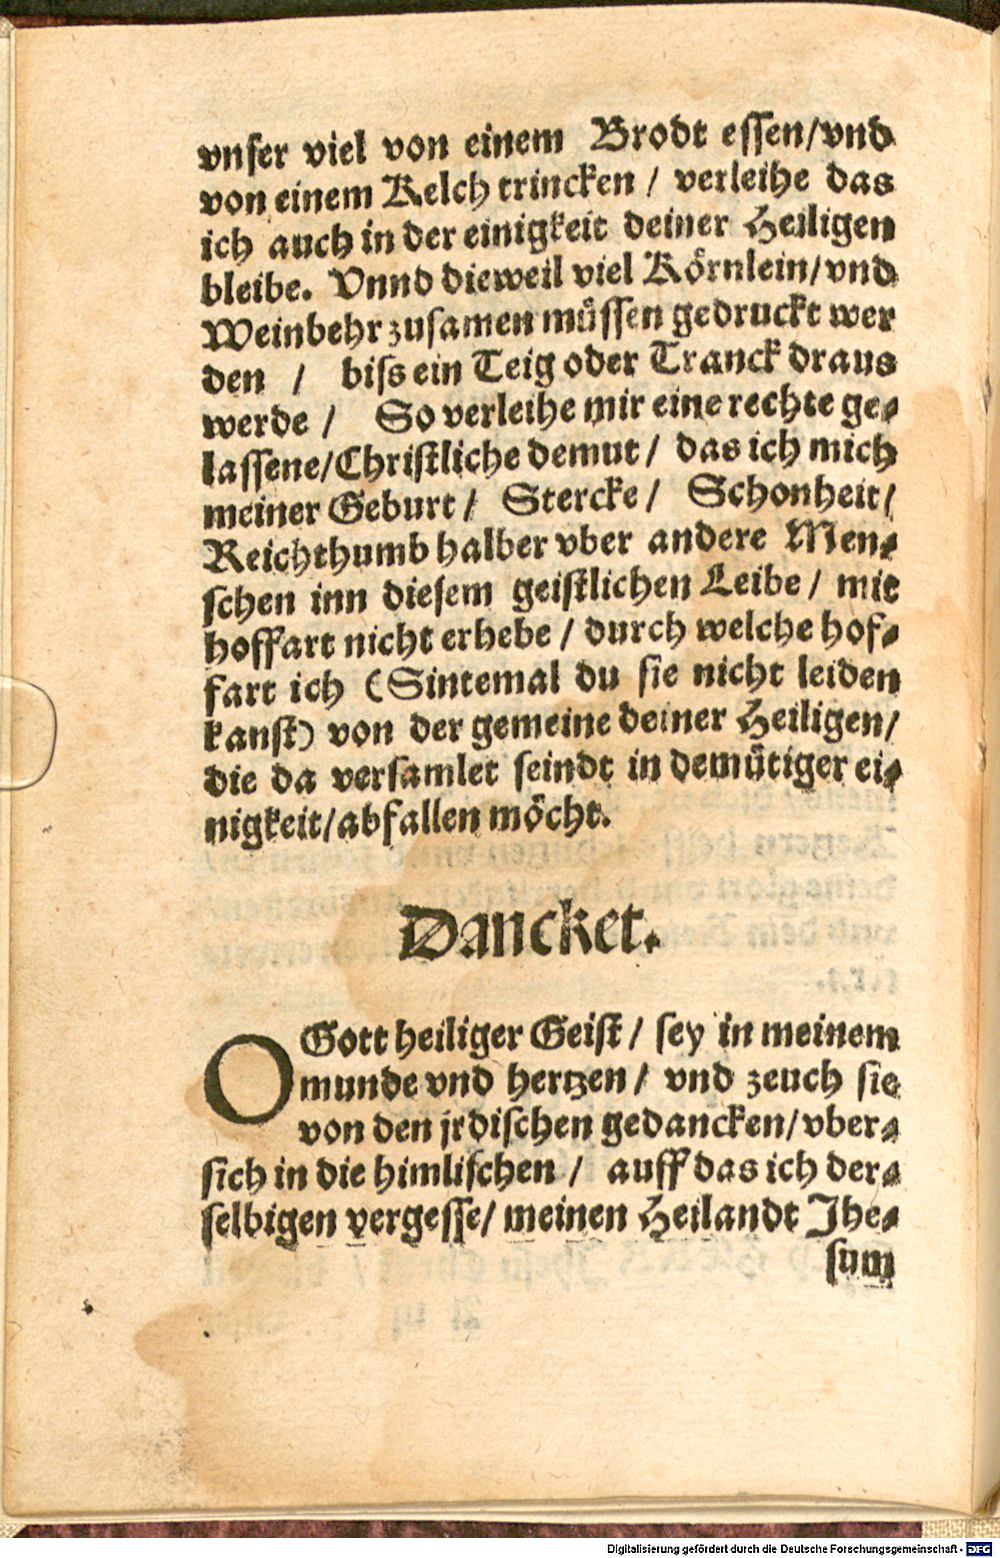 vnser viel von einem Brodt essen/vnd
von einem Kelch trincken / verleihe das
ich auch in der einigkeit deiner Heiligen
bleibe. Vnnd dieweil viel Körnlein/vnd
Weinbehr zusamen müssen gedruckt wer
den / biss ein Teig oder Tranck draus
werde / So verleihe mir eine rechte ge-
lassene/Christliche demut / das ich mich
meiner Geburt / Stercke / Schonheit/
Reichthumb halber vber andere Men-
schen inn diesem geistlichen Leibe / mit
hoffart nicht erhebe / durch welche hof-
fart ich (Sintemal du sie nicht leiden
kanst) von der gemeine deiner Heiligen/
die da versamlet seindt in demütiger ei-
nigkeit/abfallen möcht.
Dancket.
O Gott heiliger Geist / sey in meinem
munde vnd hertzen / vnd zeuch sie
von den jrdischen gedancken/vber-
sich in die himlischen / auff das ich der-
selbigen vergesse/ meinen Heilandt Jhe-
sum
Digitalisierung gefördert durch die Deutsche Forschungsgemeinschaft - DFG